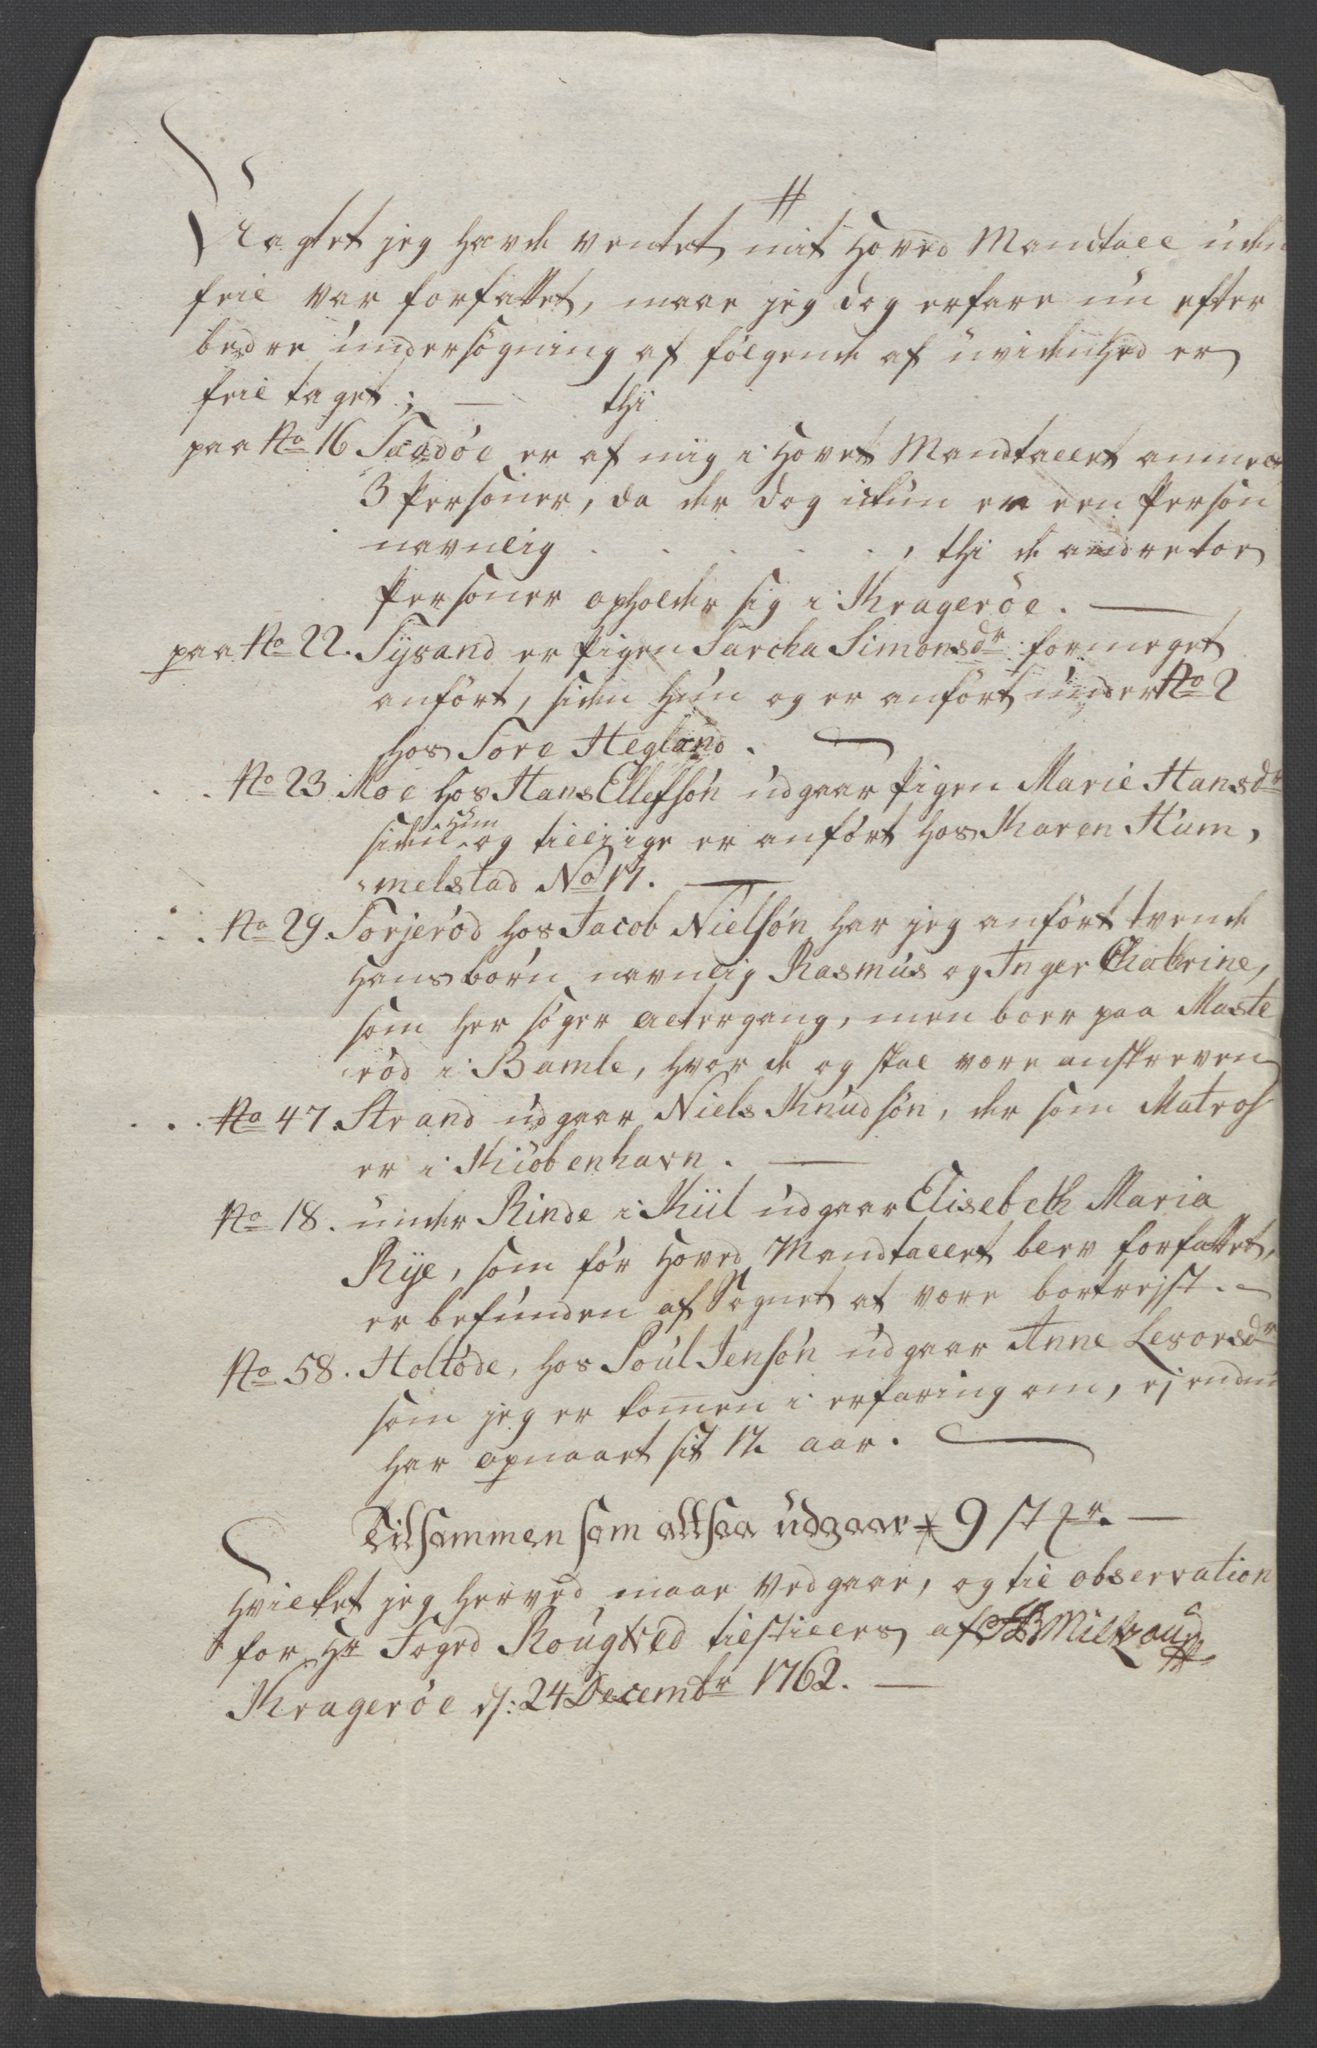 Uagtet jeg havde ventet mit Hoved Mandtall uden
feil var forfattet, maae jeg dog erfare nu efter
bedre undersögning at følgende af uvidenhed er
feil taget; — thi
paa No 16 Scadöe er af mig i Hovet Mandtallet anmelt
3 Personer, da der dog ickun er een Person
navnlig . . . . . , thi de andre toe
Personer opholder sig i Kragerøe. —
paa No 22. Tÿsand er Pigen Tarcha Simonsdr formeget
anfört, siden hun og er anfört under No 2
hos Tore Hegland.
No 23 Moe hos Hans Ellefsön udgaar Pigen Marie Hansdr
siden hun og tillige er anfört hos Karen Hum,
melstad No 17. —
No 29 Torjeröd hos Jacob Nielsön har jeg anfört tvende
Hans börn navnlig Rasmus og Inger Chatrine,
som her söger altergang, men boer paa Maste
röd i Bamle, hvor de og skal være anskreven
No 47 Strand udgaar Niels Knudsön, der som Matros
er i Kiöbenhavn. —
No 18. under Rinde i Kiil udgaar Elisebeth Maria
Rÿe, som för Hoved Mandtallet blev forfattet,
er befunden af Sognet at være bortrejst. —
No 58. Holtöde, hos Poul Jensön udgaar Anne Levorsdr
som jeg er komen i erfaring om, ej endnu
har opnaaet sit 12 aar. —
Tilsammen som altsaa udgaar 9 st pr. —
Hvilket jeg herved maae vedgaae, og til observation
for Hr Foged Rougtved tilstilles af JB Miltzou
Kragerøe d: 24 Decembr 1762. —